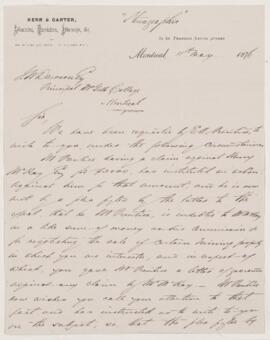 KERR & CARTER,
Advocates, Barristers, Attorneys, &c.
Montreal, 11th May 1876
J W Dawson Esq
Principal McGill College
Montreal
Sir,
We have been requested by E. H. 
write to you under the following circumstances
Mr having a claim against Henry
McKay Esq for has instituted an action
against him for that amount, and he is now
met by a plea by the latter to the
effect that he Mr is indebted to McKay
in a like sum of money as due commission
for negotiating the sale of certain mining property
in which you are interested, and in respect of
which, you gave Mr a letter of guarantee
against any claim by Mr McKay — Mr
now wishes you call your attention to that
fact and has instructed us to write to you
on the subject, so that the plea by